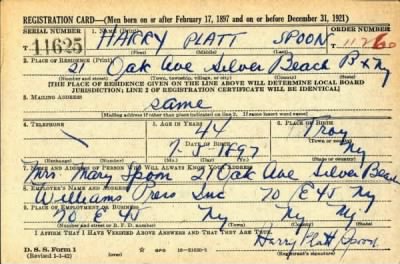 REGISTRATION CARD—(Men born on or after February 17, 1897 and on or before December 31, 1921)
SERIAL NUMBER 1. NAME (Print) ORDER NUMBER
11625 HARRY PLATT SPOON
(First) (Middle) (Last)
2. PLACE OF RESIDENCE (Print)
21 Oak Ave Silver Beach Bx Ny
(Number and street) (Town, township, village, or city) (County) (State)
[THE PLACE OF RESIDENCE GIVEN ON THE LINE ABOVE WILL DETERMINE LOCAL BOARD
JURISDICTION; LINE 2 OF REGISTRATION CERTIFICATE WILL BE IDENTICAL]
3. MAILING ADDRESS
Same
[Mailing address if other than place indicated on line 2. If same insert word same]
4. TELEPHONE 5. AGE IN YEARS 6. PLACE OF BIRTH
44 Troy
DATE OF BIRTH
Ny
(Exchange) (Number) (Mo.) (Day) (Yr.) (State or country)
7. NAME AND ADDRESS OF PERSON WHO WILL ALWAYS KNOW YOUR ADDRESS
Mrs Mary Spoon 21 Oak Ave Silver Beach
8. EMPLOYER'S NAME AND ADDRESS
Williams Press Inc 70 E 45 Ny
9. PLACE OF EMPLOYMENT OR BUSINESS
70 E 45 Ny Ny Ny
(Number and street or R. F. D. number) (Town) (County) (State)
I AFFIRM THAT I HAVE VERIFIED ABOVE ANSWERS AND THAT THEY ARE TRUE.
D. S. S. Form 1
(Revised 1-1-42)
Harry Platt Spoon